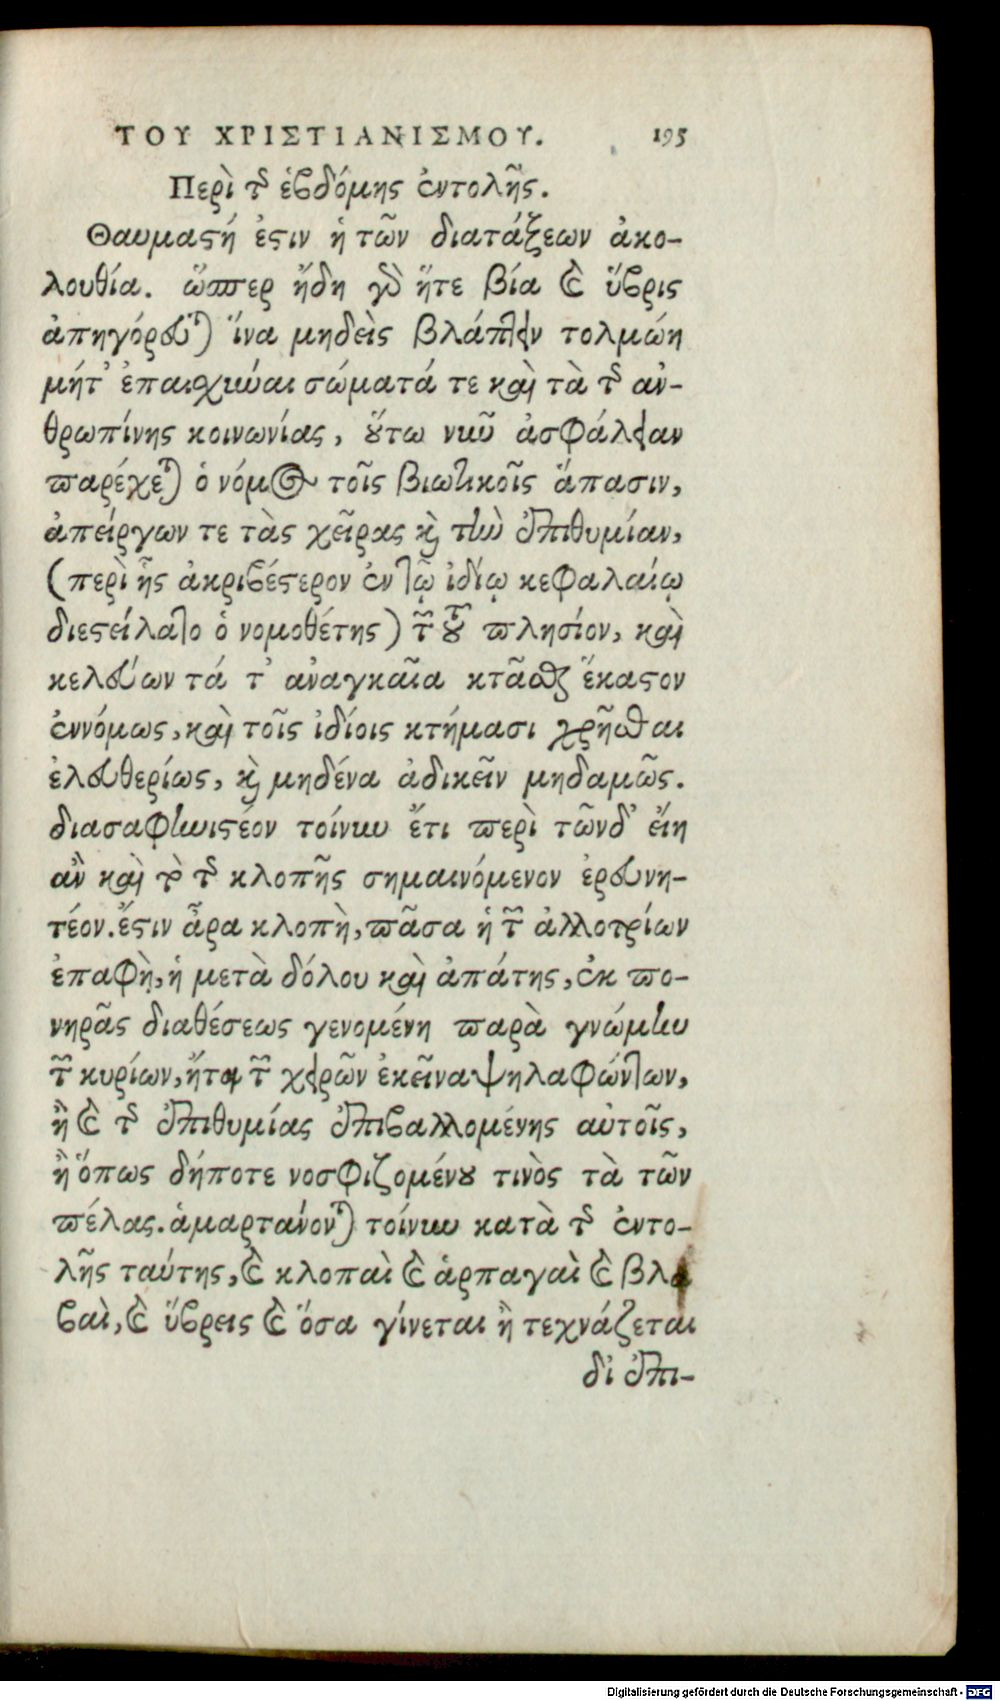 ΤΟΥ ΧΡΙΣΤΙΑΝΙΣΜΟΥ. 195
Περὶ τῆς ἑβδόμης ἐντολῆς.
Θαυμαστή ἐστιν ἡ τῶν διατάξεων ἀκο-
λουθία. ὥσπερ ἤδη γὰρ ἥτε βία καὶ ὕβρις
ἀπηγόρευται ἵνα μηδεὶς βλάπτειν τολμῴη
μήτ' ἐπαισχῦναι σώματά τε καὶ τὰ τῆς ἀν-
θρωπίνης κοινωνίας, οὕτω νῦν ἀσφάλειαν
παρέχεται ὁ νόμος τοῖς βιωτικοῖς ἅπασιν,
ἀπείργων τε τὰς χεῖρας καὶ τὴν ἐπιθυμίαν,
(περὶ ἧς ἀκριβέστερον ἐν τῷ ἰδίῳ κεφαλαίῳ
διεστείλατο ὁ νομοθέτης) τῶν τοῦ πλησίον, καὶ
κελεύων τά τ' ἀναγκαῖα κτᾶσθαι ἕκαστον
ἐννόμως, καὶ τοῖς ἰδίοις κτήμασι χρῆσθαι
ἐλευθερίως, καὶ μηδένα ἀδικεῖν μηδαμῶς.
διασαφηνιστέον τοίνυν ἔτι περὶ τῶνδ' εἴη
ἂν καὶ τὸ τῆς κλοπῆς σημαινόμενον ἐρευνη-
τέον. ἔστιν ἆρα κλοπὴ, πᾶσα ἡ τῶν ἀλλοτρίων
ἐπαφὴ, ἡ μετὰ δόλου καὶ ἀπάτης, ἐκ πο-
νηρᾶς διαθέσεως γενομένη παρὰ γνώμην
τῶν κυρίων, ἤτοι τῶν χειρῶν ἐκεῖνα ψηλαφώντων,
ἢ καὶ τῆς ἐπιθυμίας ἐπιβαλλομένης αὐτοῖς,
ἢ ὅπως δήποτε νοσφιζομένου τινὸς τὰ τῶν
πέλας. ἁμαρτάνονται τοίνυν κατὰ τῆς ἐντο-
λῆς ταύτης, καὶ κλοπαὶ καὶ ἁρπαγαὶ καὶ βλα
βαὶ, καὶ ὕβρεις καὶ ὅσα γίνεται ἢ τεχνάζεται
δι ἐπι-
Digitalisierung gefördert durch die Deutsche Forschungsgemeinschaft - DFG